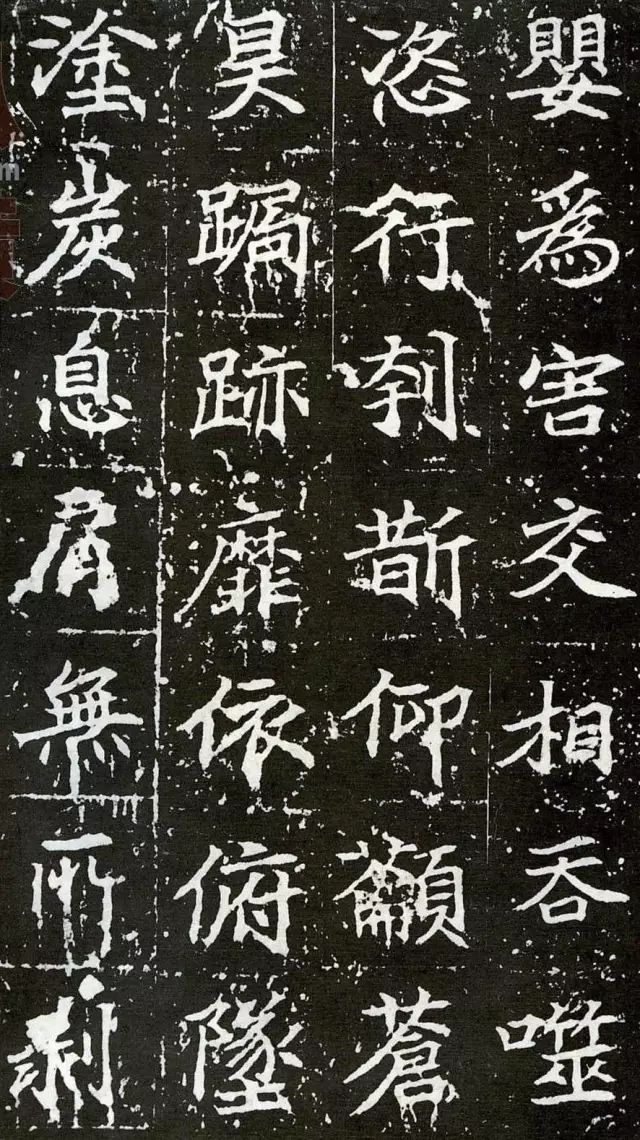 嬰爲害交相吞噬
恣行刳斮仰籲蒼
昊跼跡靡依俯墜
塗炭息肩無所